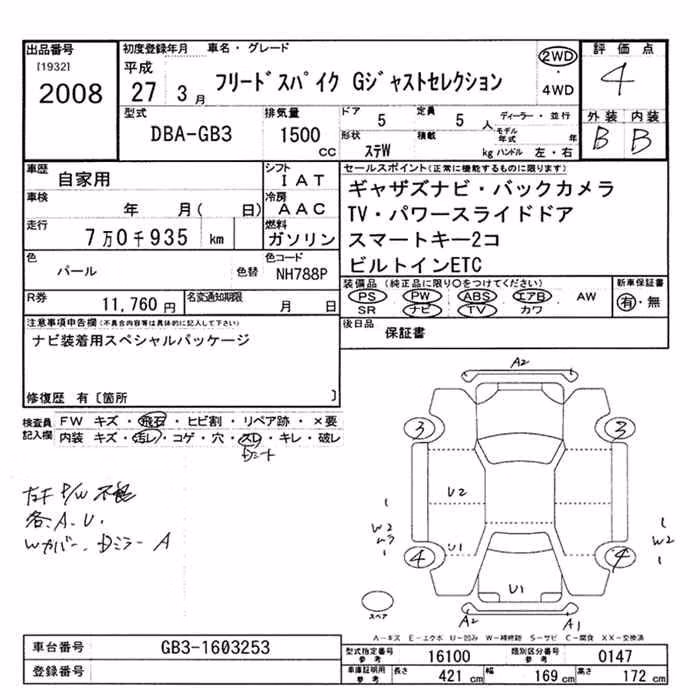 出品番号 初度登録年月 車名・グレード 評価点
[1932] 平成 2WD ・ 4WD 4
2008 27 3月 フリードスパイク Gジャストセレクション
型式 排気量 ドア 定員 ディーラー・並行 外装 内装
DBA-GB3 1500 CC 5 5 人 モデル年式 年 B B
形状 ステW 積載 kg ハンドル 左・右
車歴 自家用 シフト IAT セールスポイント(正常に機能するものに限ります)
車検 年 月( 日) 冷房 AAC ギャザズナビ・バックカメラ
走行 7万0千935 km 燃料 ガソリン TV・パワースライドドア
スマートキー2コ
ビルトインETC
色 パール 色替 色コード NH788P
装備品(純正品に限り○をつけてください) 新車保証書
PS PW ABS エアB AW 有・無
SR ナビ TV カワ
R券 11,760円 名変通知期限 月 日
後日品 保証書
注意事項申告欄(不具合内容等は具体的に記入して下さい)
ナビ装着用スペシャルパッケージ
修復歴 有〔箇所 〕
検査員記入欄 FW キズ・飛石・ヒビ割・リペア跡・×要
内装 キズ・汚レ・コゲ・穴・スレ・キレ・破レ
P/W 不良
各A.U.
Wカバー、Dミラー A
A2
3 3
U2
W2 ムラ
U1
W2
4 4
U1
スペア
A2 A1
A－キズ E－エクボ U－凹み W－補修跡 S－サビ C－腐食 XX－交換済
車台番号 GB3-1603253
登録番号
型式指定番号 参考 16100 類別区分番号 参考 0147
車庫証明用 参考 長さ 421 cm 幅 169 cm 高さ 172 cm